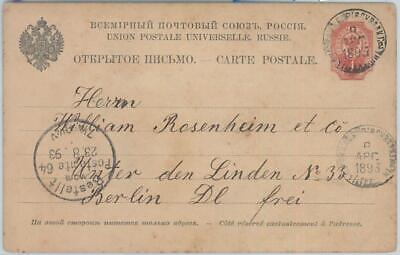 ВСЕМІРНЫЙ ПОЧТОВЫЙ СОЮЗЪ. РОССІЯ.
UNION POSTALE UNIVERSELLE. RUSSIE.
ОТКРЫТОЕ ПИСЬМО. — CARTE POSTALE.
Herrn
William Rosenheim et Co
Unter den Linden No 33
Berlin
frei
Bestellt
vom
Postamte 64
23 8 93
На этой сторонѣ пишется только адресъ. — Côté réservé exclusivement à l'adresse.